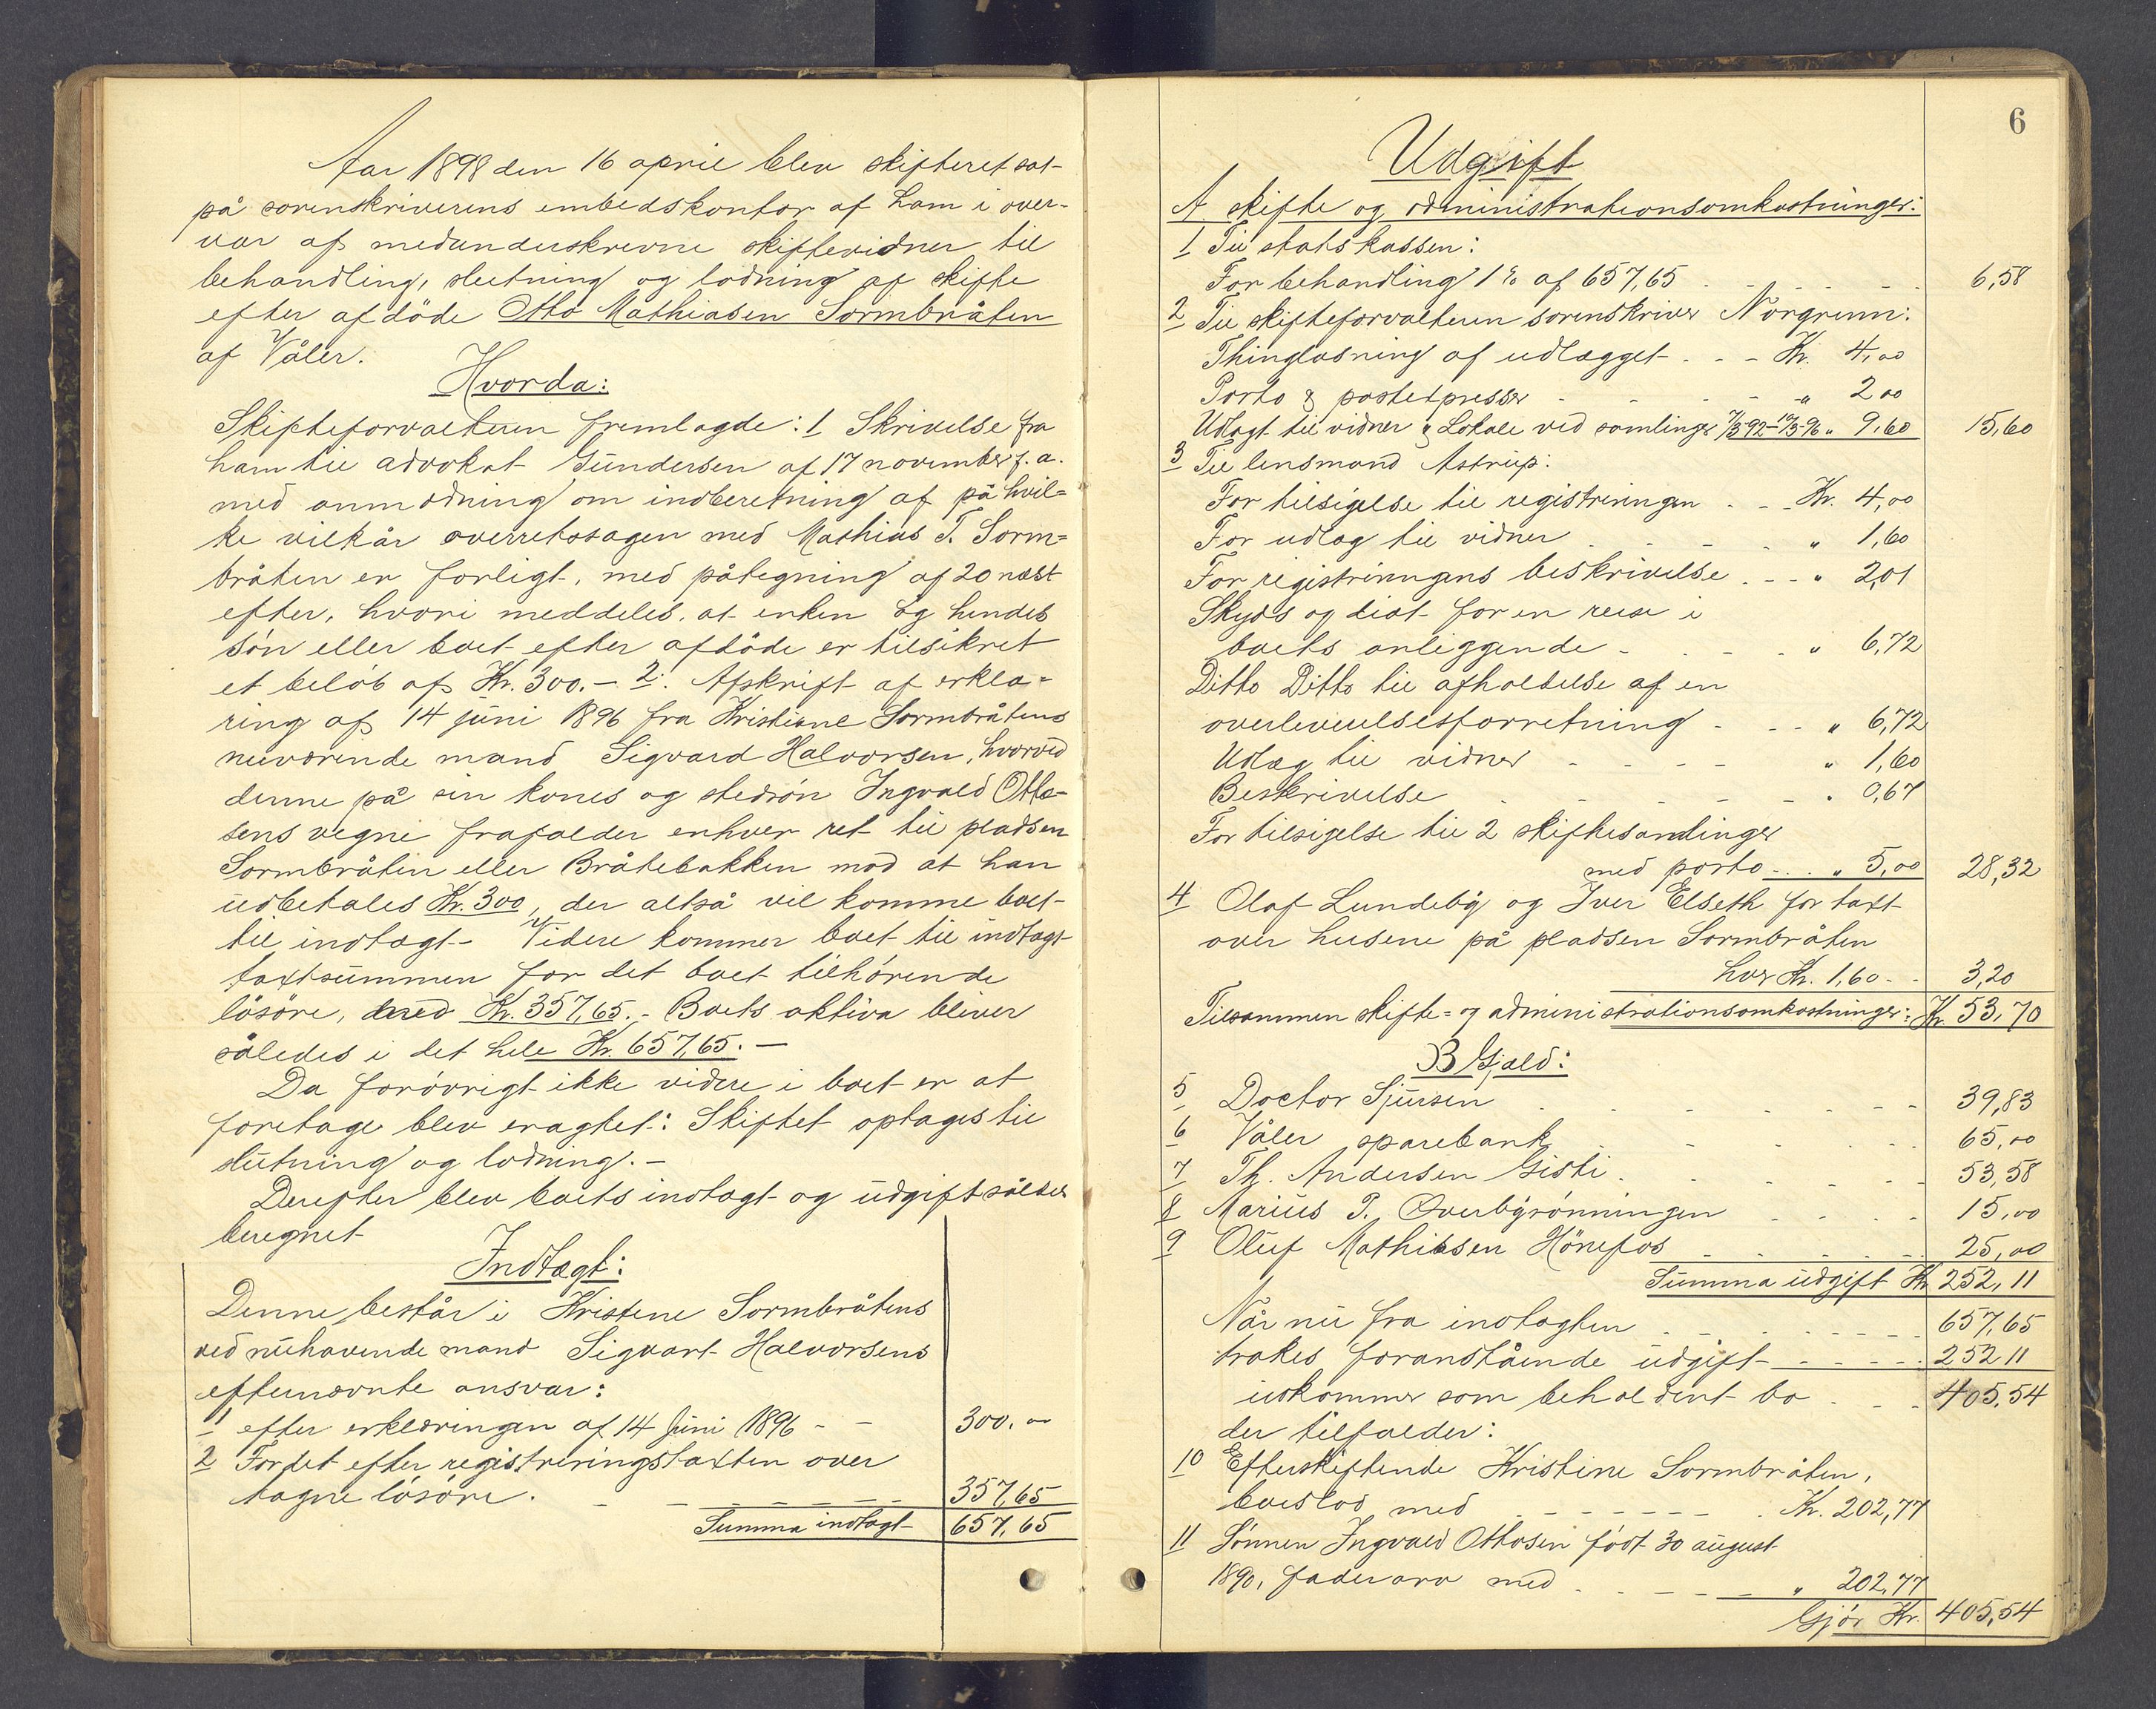 Aar 1898 den 16 april blev skifteret sat
på sorenskriverens embedskontor af ham i over-
vær af medunderskrevne skiftevidner til
behandling, slutning og lodning af skifte
efter afdöde Otto Mathiasen Sormbråten
af Våler.
Hvorda:
Skifteforvalteren fremlagde: 1 Skrivelse fra
ham til advokat Gundersen af 17 november f. a.
med anmodning om indberetning af på hvil=
ke vilkår overretssagen med Mathias T. Sorm=
bråten er forligt, med påtegning af 20 næst
efter, hvori meddeles, at enken og hendes
sön eller boet efter afdöde er tilsikret
et belöb af Kr. 300.- 2. Afskrift af erklæ=
ring af 14 juni 1896 fra Kristiane Sormbråtens
nuværende mand Sigvard Halvorsen, hvorved
denne på sin kones og stedsön Ingvald Otto-
sens vegne frafalder enhver ret til pladsen
Sormbråten eller Bråtebakken mod at han
udbetales Kr. 300, der altså vil komme boet
til indtægt.- Videre kommer boet til indtægt
taxtsummen for det boet tilhörende
lösöre, med Kr. 357,65.- Boets aktiva bliver
således i det hele Kr. 657,65.-
Da forövrigt ikke videre i boet er at
foretage blev eragtet: Skiftet optages til
slutning og lodning.-
Derefter blev boets indtægt og udgift således
beregnet
Indtægt:
Denne består i Kristine Sormbråtens
ved nuhavende mand Sigvart Halvorsens
efternævnte ansvar:
1 efter erklæringen af 14 Juni 1896 - - 300,00
2 For det efter registreringstaxten over
tagne lösöre. - - - - - - 357,65
Summa indtægt 657,65
6
Udgift
A skifte og administrationsomkostninger:
1 Til statskassen:
For behandling 1% af 657,65 - - - - - 6,58
2 Til skifteforvalteren sorenskriver Norgrenn:
Thinglæsning af udlægget - - - Kr. 4,00
Porto & postexpresser - - - - " 2 00
Udlagt til vidner & Lokale ved samlinger 7/3-92 - 17/3-96 " 9,60 15,60
3 Til lensmand Astrup:
For tilsigelse til registreringen - - - Kr. 4,00
For udlæg til vidner - - - - " 1,60
For registreringens beskrivelse - - - " 2,01
Skyds og diæt for en reise i
boets anliggende - - - - " 6,72
Ditto Ditto til afholdelse af en
overleverelsesforretning - - - " 6,72
Udlæg til vidner - - - - " 1,60
Beskrivelse - - - - - - " 0,67
For tilsigelse til 2 skiftesamlinger
med porto - - - " 5,00 28,32
4 Olaf Lundeby og Iver Elseth for taxt
over husene på pladsen Sormbråten
hver Kr. 1,60 - - 3,20
Tilsammen skifte= og administrationsomkostninger: Kr. 53,70
B Gjæld:
5 Doctor Sjursen - - - - - - 39,83
6 Våler sparebank - - - - - 65,00
7 Th. Andersen Gisti - - - - - 53,58
8 Marius P. Overbyrönningen - - - - 15,00
9 Oluf Mathisen Hönefos - - - - - 25,00
Summa udgift Kr 252,11
Når nu fra indtægten - - - - - - 657,65
trækes foranstående udgift - - - - - 252 11
udkommer som beholdent bo - - - 405,54
der tilfalder:
10 Efterskiftende Kristine Sormbråten,
boeslod med - - - - - - - Kr. 202,77
11 Sönnen Ingvald Ottosen född 30 august
1890, faderarv med - - - - - " 202,77
Gjör Kr. 405,54